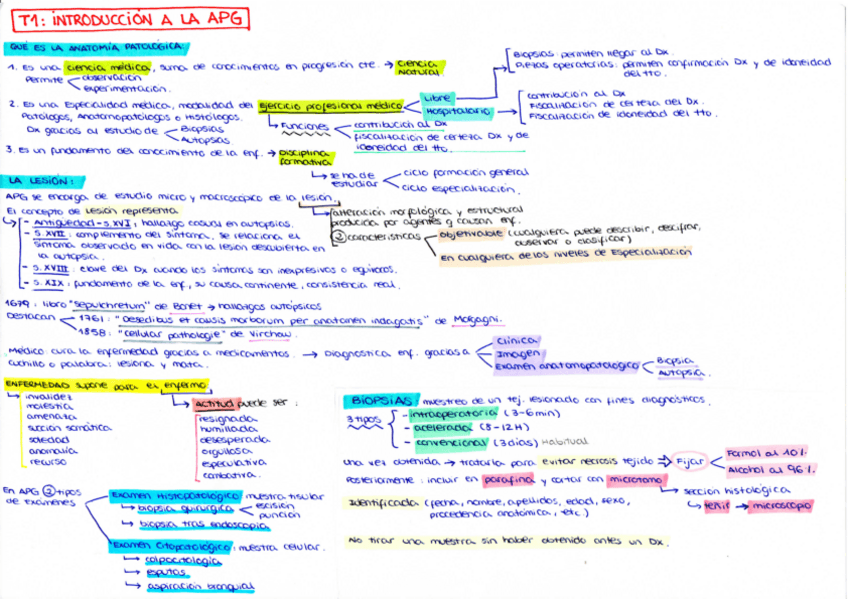 T1: INTRODUCCIÓN A LA APG
QUÉ ES LA ANATOMÍA PATOLÓGICA:
1. Es una ciencia médica, suma de conocimientos en progresión cte. → ciencia natural
Permite observación
experimentación.
2. Es una Especialidad médica, modalidad del ejercicio profesional médico
Libre
Hospitalario
Biopsias: permiten llegar al Dx.
Piezas operatorias: permiten confirmación Dx y de idoneidad del tto.
contribución al Dx
Fiscalización de certeza del Dx.
Fiscalización de idoneidad del tto.
Patólogos, Anatomopatólogos o Histólogos.
Dx gracias al estudio de Biopsias
Autopsias
Funciones
contribución al Dx
fiscalización de certeza Dx y de idoneidad del tto.
3. Es un fundamento del conocimiento de la enf. → Disciplina formativa
se ha de estudiar
ciclo formación general
ciclo especialización.
LA LESIÓN:
APG se encarga de estudio micro y macroscópico de la lesión.
alteración morfológica y estructural producida por agentes q causan enf.
2 características
objetivable (cualquiera puede describir, descifrar, observar o clasificar)
en cualquiera de los niveles de Especialización
El concepto de lesión representa
- Antigüedad - S.XVI: hallazgo casual en autopsias.
- S.XVII: complemento del síntoma, se relaciona el síntoma observado en vida con la lesión descubierta en la autopsia.
- S.XVIII: clave del Dx cuando los síntomas son inexpresivos o equívocos.
- S.XIX: fundamento de la enf, su causa continente, consistencia real.
1679: libro "Sepulchretum" de Bonet → hallazgos autópsicos
Destacan
1761: "Desedibus et causis morborum per anatomen indagatis" de Morgagni.
1858: "cellular pathologie" de Virchow.
Médico: cura la enfermedad gracias a medicamentos. → Diagnostica enf. gracias a
cuchillo o palabra: lesiona y mata.
Clínica
Imagen
Examen anatomopatológico
Biopsia
Autopsia.
ENFERMEDAD supone para el enfermo
invalidez
molestia
amenaza
succión somática
soledad
anomalía
recurso
actitud puede ser:
resignada
humillada
desesperada
orgullosa
especulativa
combativa.
En APG 2 tipos de exámenes
Examen Histopatológico: muestra tisular
biopsia quirúrgica
escisión
punción
biopsia tras endoscopia
Examen Citopatológico: muestra celular.
colpocitología
esputos
aspiración bronquial
BIOPSIAS: muestreo de un tej. lesionado con fines diagnósticos.
3 tipos
- intraoperatoria (3-6min)
- acelerada (8-12H)
- convencional (3días) Habitual
una vez obtenida → tratarla para evitar necrosis tejido ⇒ Fijar
Formol al 10%.
Alcohol al 96%.
Posteriormente: incluir en parafina y cortar con microtomo
sección histológica
teñir → microscopio
Identificada (fecha, nombre, apellidos, edad, sexo, procedencia anatómica, etc.)
No tirar una muestra sin haber obtenido antes un Dx.